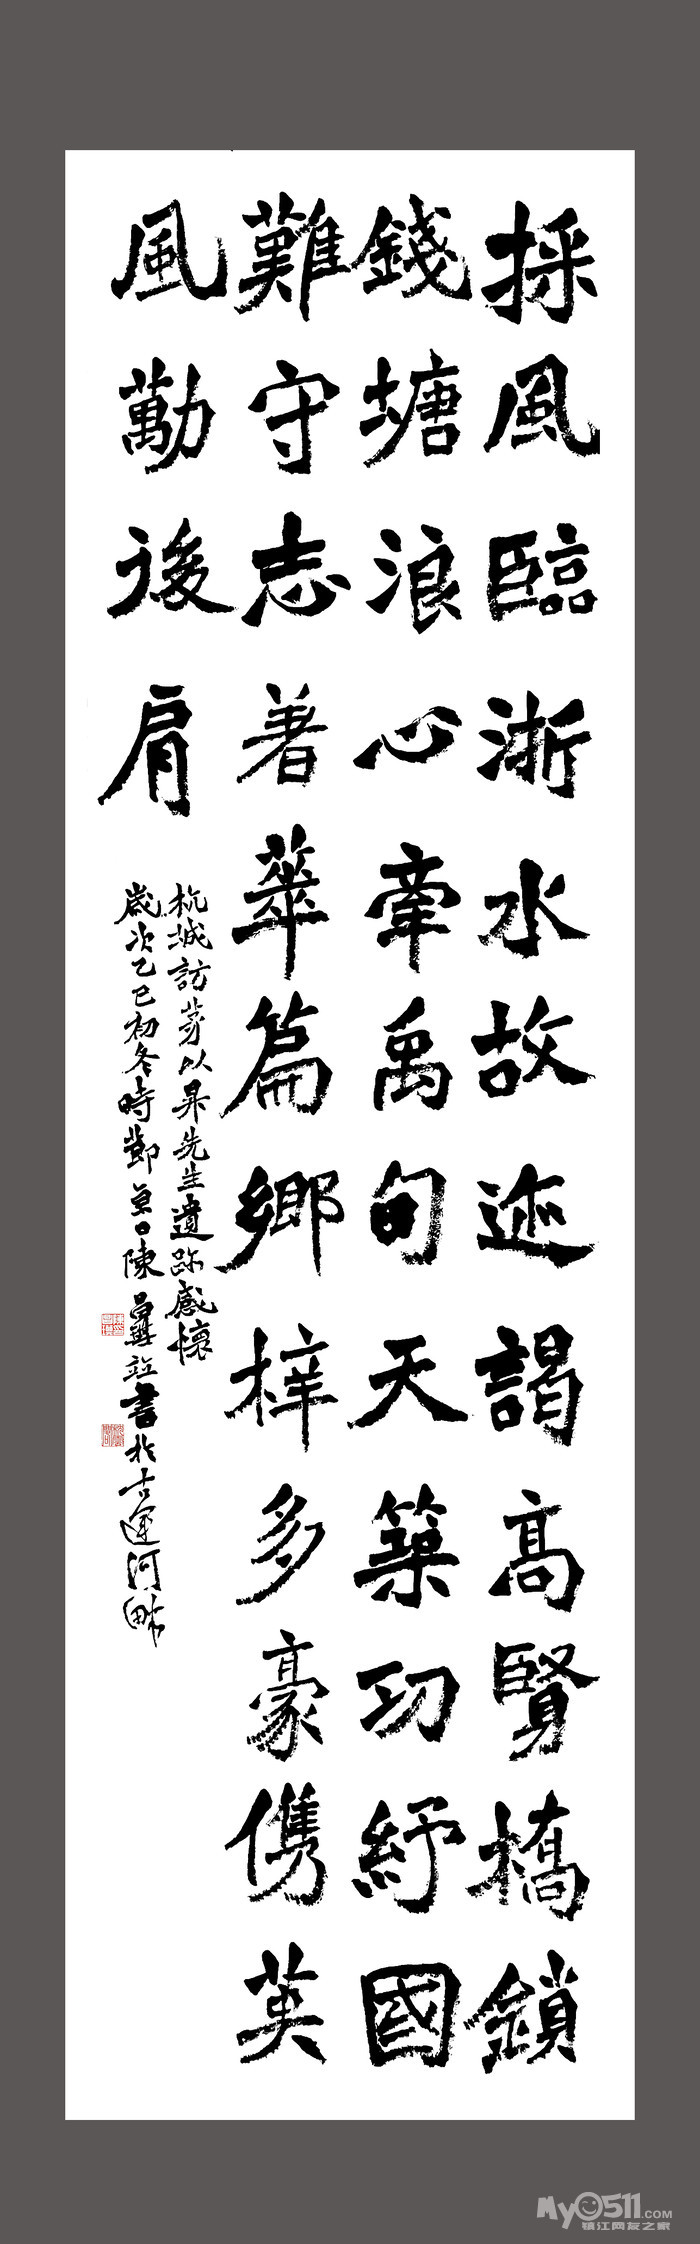 採風臨浙水故迹謁高賢橋鎖
錢塘浪心牽禹甸天築功紓國
難守志著華篇鄉梓多豪儁英
風勱後肩
杭城訪茅以昇先生遺跡感懷
歲次乙巳初冬時陳並書於古運河畔
My0511.com
镇江网友之家